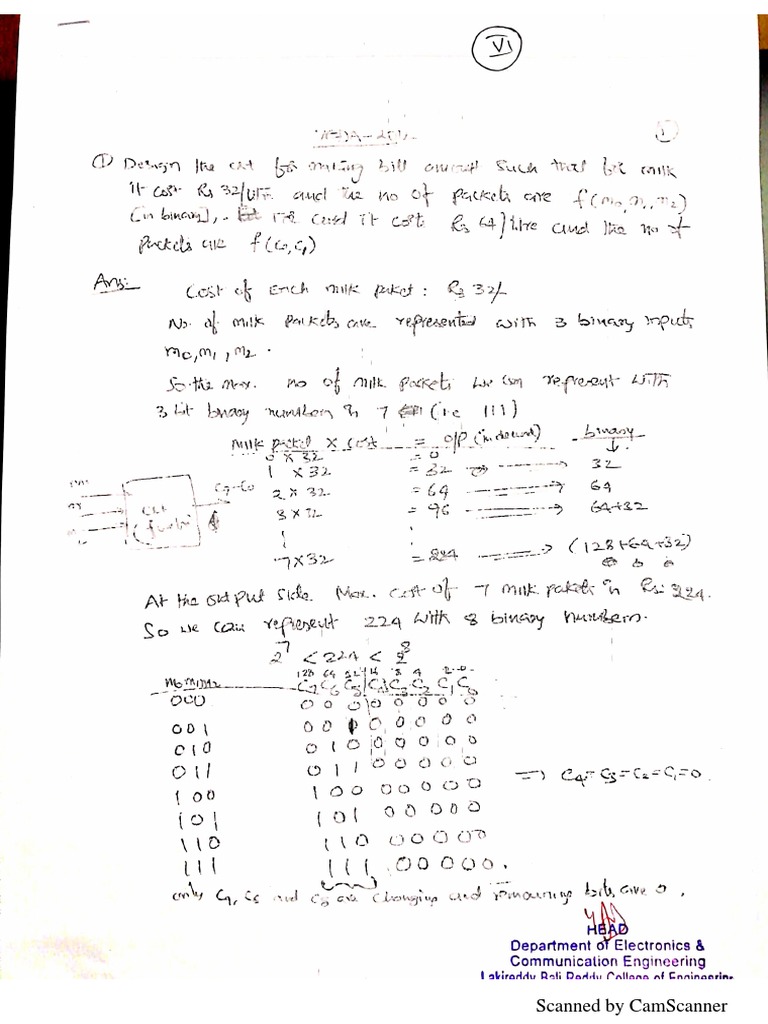 VI
1
① Design the ckt for making bill amount such that for milk
it cost Rs 32/ and the no of packets are f(m0,m1,m2)
(in binary), cost Rs 64/litre and the no of
packets are f(c0,c1)
Ans:
Cost of Each milk packet : Rs 32/-
No. of milk packets are represented with 3 binary inputs
m0,m1,m2.
So the max. no of milk packets we can represent with
3 bit binary number is 7 (i.e 111)
milk packet × cost = O/P (in decimal) binary
0 × 32 = 0
1 × 32 = 32 → 32
2 × 32 = 64 → 64
3 × 32 = 96 → 64+32
7×32 = 224 → (128+64+32)
ckt
C7-C0
At the output side. Max. cost of 7 milk packets is Rs. 224.
So we can represent 224 with 8 binary numbers.
2^7 < 224 < 2^8
128 64 32 16 8 4 2
M0 M1 M2 C7 C6 C5 C4 C3 C2 C1 C0
000 0 0 0 0 0 0 0 0
001 0 0 1 0 0 0 0 0
010 0 1 0 0 0 0 0 0
011 0 1 1 0 0 0 0 0 ⇒ C4=C3=C2=C1=0.
100 1 0 0 0 0 0 0 0
101 1 0 1 0 0 0 0 0
110 1 1 0 0 0 0 0 0
111 1 1 1 0 0 0 0 0.
only C7, C6 and C5 are changing and remaining bits are 0.
HEAD
Department of Electronics &
Communication Engineering
Lakireddy Bali Reddy College of Engineering
Scanned by CamScanner